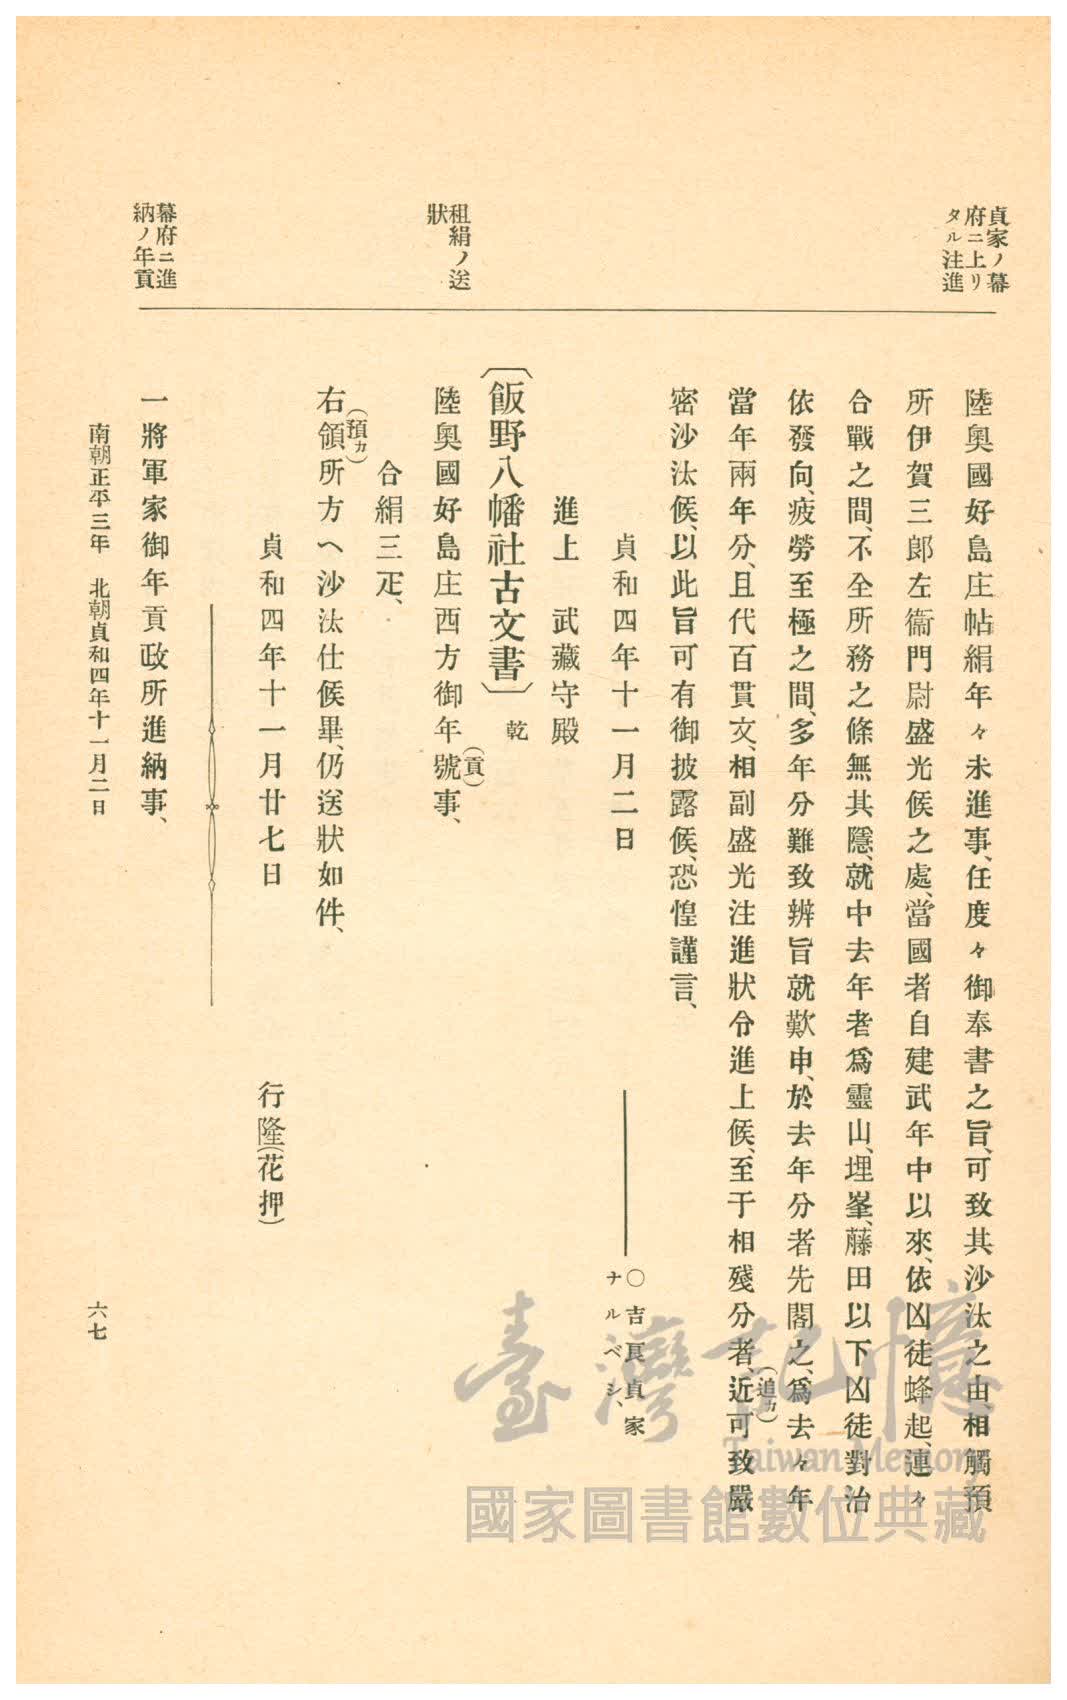 貞家ノ幕
府ニ上リ
タル注進
陸奧國好島庄帖絹年々未進事、任度々御奉書之旨、可致其沙汰之由相觸預
所伊賀三郎左衞門尉盛光候之處、當國者自建武年中以來、依凶徒蜂起、連々
合戰之間、不全所務之條無其隱、就中去年者爲靈山、埋峯、藤田以下凶徒對治
依發向、疲勞至極之間、多年分難致辨旨就歎申、於去年分者先閣之、爲去々年
當年兩年分、且代百貫文、相副盛光注進狀令進上候、至于相殘分者、近(追カ)可致嚴
密沙汰候、以此旨可有御披露候、恐惶謹言、
貞和四年十一月二日 ○吉良貞家
ナルベシ、
進上 武藏守殿
〔飯野八幡社古文書〕 乾
租絹ノ送
狀
陸奧國好島庄西方御年號(貢)事、
合絹三疋、
右領(預カ)所方ヘ沙汰仕候畢、仍送狀如件、
貞和四年十一月廿七日 行隆(花押)
幕府ニ進
納ノ年貢
一將軍家御年貢政所進納事、
南朝正平三年 北朝貞和四年十一月二日
六七
臺灣記憶
Taiwan Memory
國家圖書館數位典藏